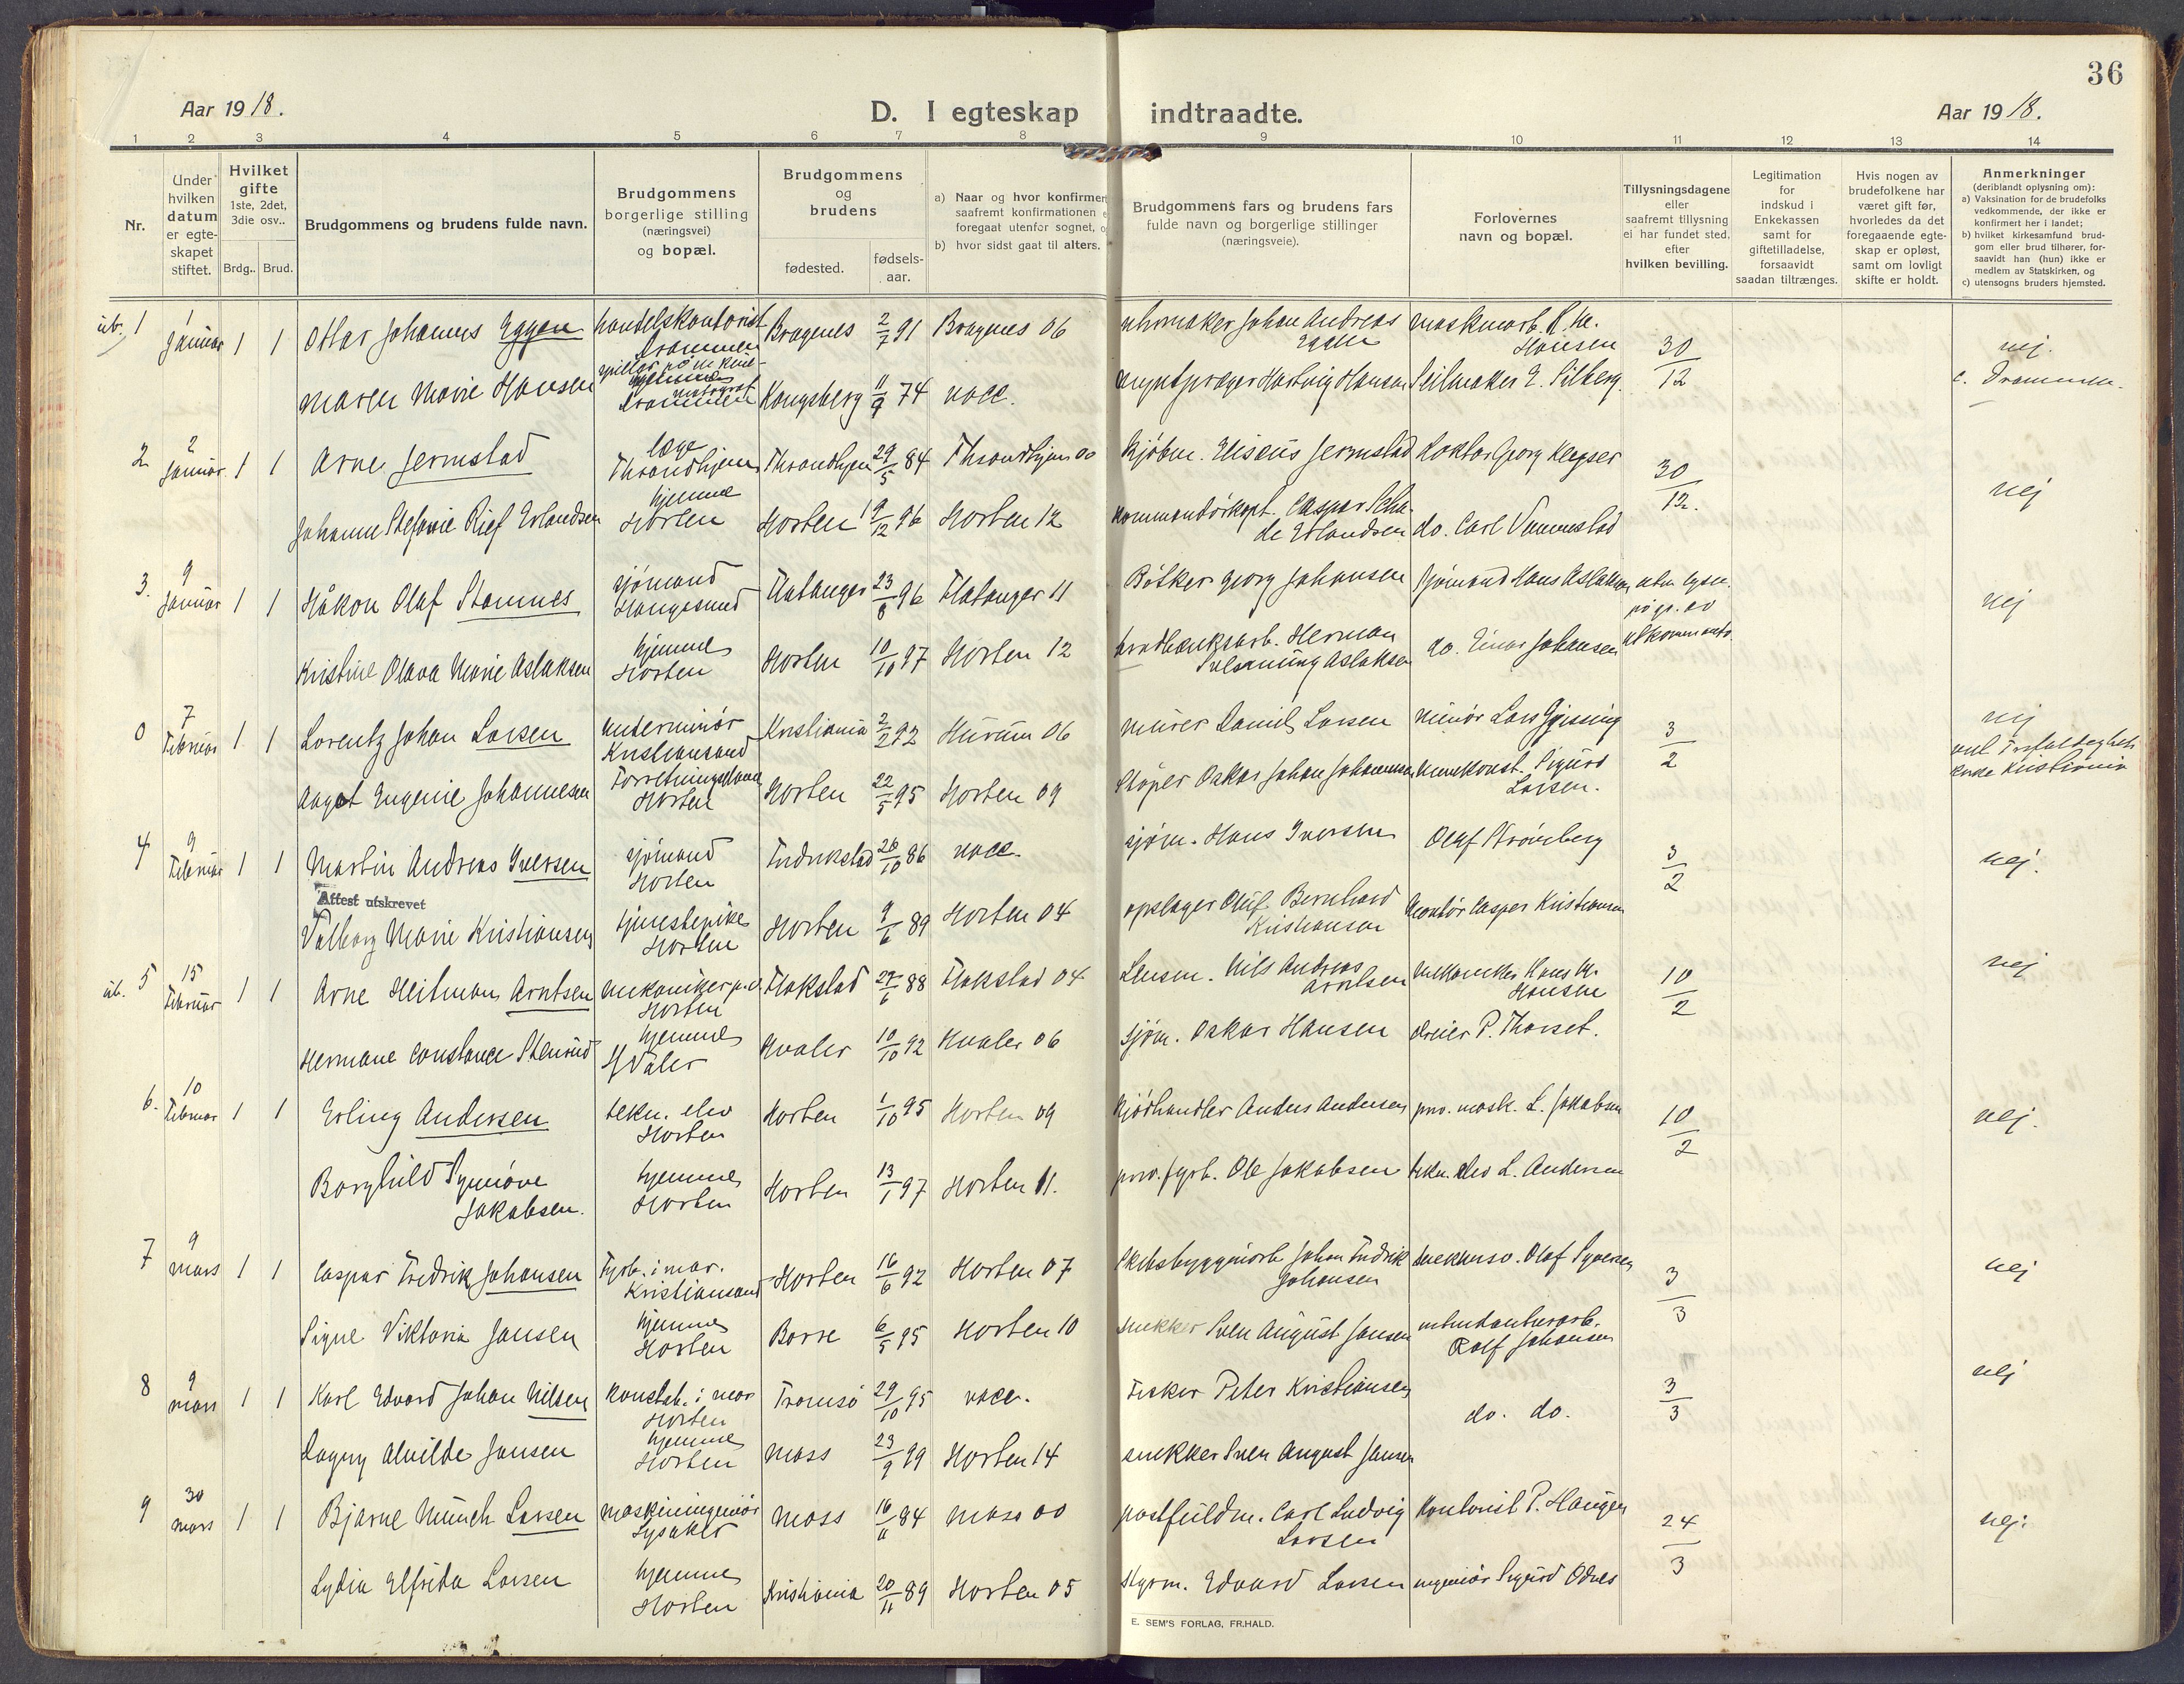 36
Aar 1918.
D. I egteskap indtraadte.
Aar 1918.
1 2 3 4 5 6 7 8 9 10 11 12 13 14
Nr.
Under hvilken datum er egteskapet stiftet.
Hvilket gifte 1ste, 2det, 3die osv..
Brdg.. Brud.
Brudgommens og brudens fulde navn.
Brudgommens borgerlige stilling (næringsvei) og bopæl.
Brudgommens og brudens
fødested.
fødselsaar.
a) Naar og hvor konfirmer
saafremt konfirmationen
foregaat utenfor sognet,
b) hvor sidst gaat til alters.
Brudgommens fars og brudens fars
fulde navn og borgerlige stillinger
(næringsveie).
Forlovernes
navn og bopæl.
Tillysningsdagene
eller
saafremt tillysning
ei har fundet sted,
efter
hvilken bevilling.
Legitimation
for
indskud i
Enkekassen
samt for
giftetilladelse,
forsaavidt
saadan tiltrænges.
Hvis nogen av
brudefolkene har
været gift før,
hvorledes da det
foregaaende egte-
skap er opløst,
samt om lovligt
skifte er holdt.
Anmerkninger
(deriblandt oplysning om):
a) Vaksination for de brudefolks
vedkommende, der ikke er
konfirmert her i landet;
b) hvilket kirkesamfund brud-
gom eller brud tilhører, for-
saavidt han (hun) ikke er
medlem av Statskirken, og
c) utensogns bruders hjemsted.
ub. 1 1 Januar 1 1 Ottar Johannes Eggen handelskontorist Drammen Bragenes 2/7 91 Bragenes 06 uhrmaker Johan Andreas Eggen maskinarb. R. M. Hansen 30/12 nej.
Maren Marie Hansen Drammen Kongsberg 11/9 74 vacc. myntpræger Hartvig Hansen Seilmaker E. Silberg. c. Drammen.
2 2 Januar 1 1 Arne Jermstad læge Throndhjem Throndhjem 29/5 84 Throndhjem 00 Kjøbm. Eliseus Jermstad Doktor Georg Keyser 30/12. nej
Johanne Stefanie Rief Erlandsen hjemme Horten Horten 19/12 96 Horten 12 kommandørkapt. Caspar Schade Erlandsen do. Carl Vennestad
3. 9 Januar 1 1 Håkon Olaf Stamnes sjømand Haugesund Flatanger 23/8 96 Flatanger 11 Bøtker Georg Johansen sjømand Hans Aslaksen uten lysn. på gr. av utkommando. nej
Kristine Olava Marie Aslaksen hjemme Horten Horten 10/10 97 Horten 12 Herman Aslaksen do. Einar Johansen
0 7 Februar 1 1 Lorentz Johan Larsen underminør Kristiansand Kristiania 2/2 92 Hurum 06 murer Daniel Larsen minør Lars Gjessing 3/2 nej
Aagot Eugenie Johannesen Forretningsdame Horten Horten 22/5 95 Horten 09 Støper Oskar Johan Johannesen minekonst. Sigurd Larsen. Kristiania
4 9 Februar 1 1 Martin Andreas Iversen sjømand Horten Fredrikstad 26/10 86 vacc. sjøm. Hans Iversen Oluf Strømberg 3/2 nej.
Attest utskrevet
Valborg Marie Kristiansen tjenestepike Horten Horten 9/6 89 Horten 04 opslager Oluf Bernhard Kristiansen Casper Kristiansen
ub. 5 15 Februar 1 1 Arne Heitman Arntsen mekaniker Horten Flakstad 27/6 88 Flakstad 04 Lensm. Nils Andreas Arntsen mekaniker Hans M. Hansen 10/2 nej
Hermane Constance Stenrud hjemme Hvaler 10/10 92 Hvaler 06 sjøm. Oskar Hansen dreier P. Thorset.
6. 10 Februar 1 1 Erling Andersen tekn. elev Horten Horten 1/10 95 Horten 09 kjødhandler Anders Andersen prov. mask. L. Jakobsen 10/2 nej.
Borghild Synnöve Jakobsen. hjemme Horten Horten 13/1 97 Horten 11. prov. fyrb. Ole Jakobsen tekn. elev L. Andersen
7 9 mars 1 1 Caspar Fredrik Johansen Fyrb. i mar. Kristiansand Horten 16/6 92 Horten 07 Skibsbyggerarb. Johan Fredrik Johansen snekkersv. Olaf Syversen 3/3 nej
Signe Viktoria Jansen hjemme Horten Borre 6/5 95 Horten 10 snekker Sven August Jansen Rolf Johansen
8 9 mars 1 1 Karl Edvard Johan Nilsen konstab. i mar. Horten Tromsø 29/10 95 vacc. Fisker Peter Kristiansen do. do. 3/3 nej
Dagny Alvilde Jansen hjemme Horten Moss 23/9 99 Horten 14 snekker Sven August Jansen
9 30 mars 1 1 Bjarne Münch Larsen maskiningeniør Lysaker Moss 16/11 84 Moss 00 postfuldm. Carl Ludvig Larsen Kontorist P. Haugen 24/3 nej.
Lydia Elfrida Larsen hjemme Horten Kristiania 20/11 89 Horten 05 styrm. Edvard Larsen ingeniør Sigurd Odnes
E. SEM'S FORLAG, FR.HALD.